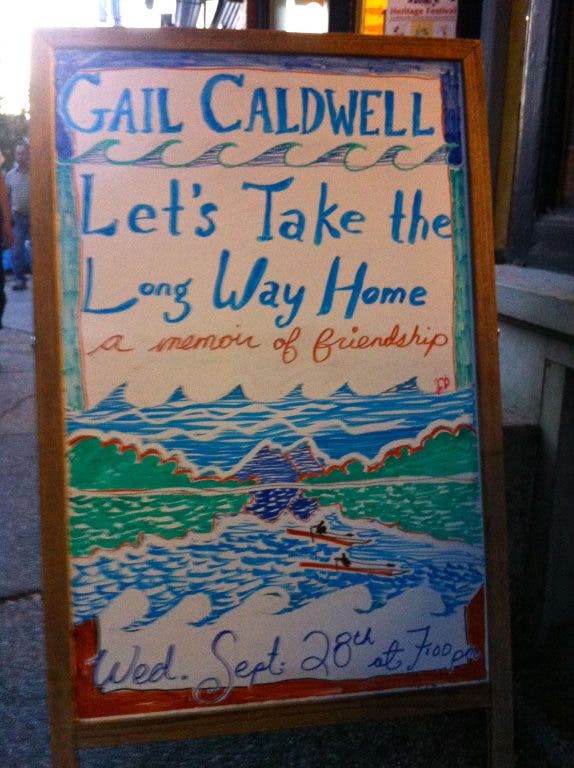 Heritage Festival
GAIL CALDWELL
Let's Take the
Long Way Home
a memoir of friendship
Wed. Sept. 28th at 7:00 pm